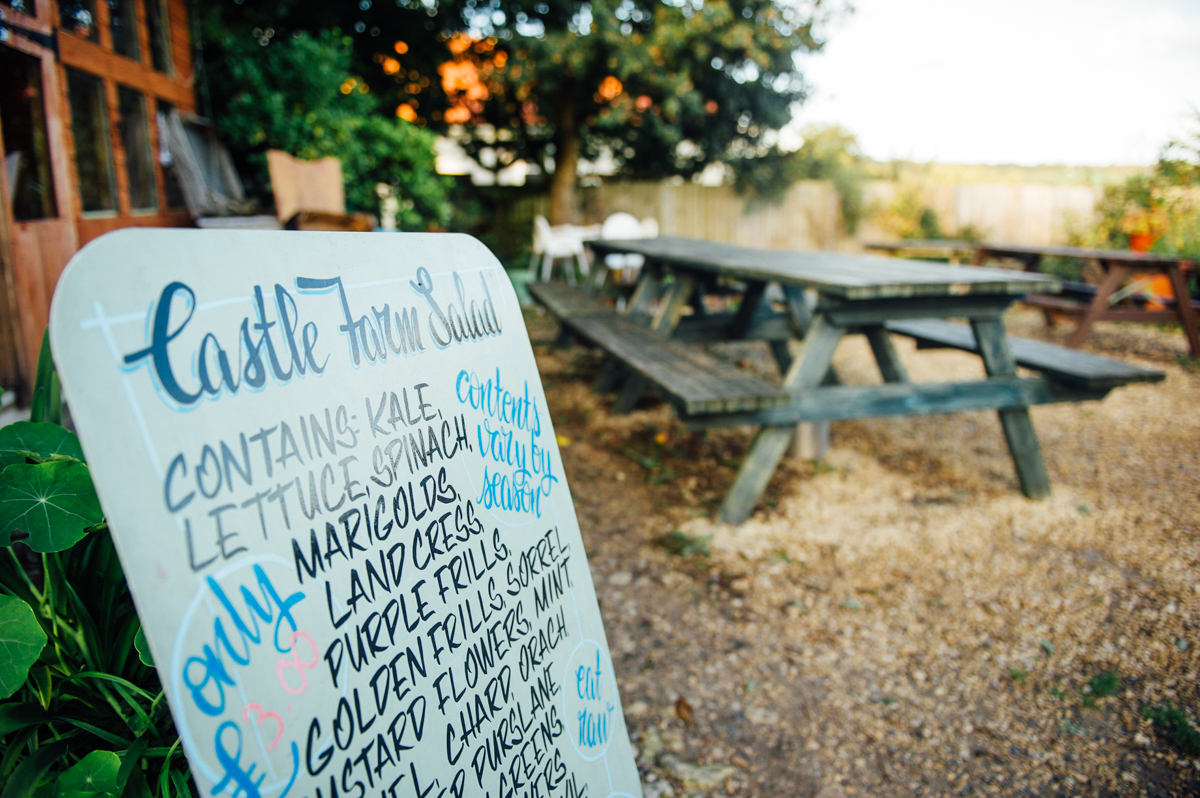 Castle Farm Salad
CONTAINS: KALE,
LETTUCE, SPINACH,
MARIGOLDS,
LAND CRESS,
PURPLE FRILLS,
GOLDEN FRILLS, SORREL
MUSTARD FLOWERS, MINT,
CHARD, ORACH
PURSLANE
GREENS
contents
vary by
season
only
£3.00
eat
raw